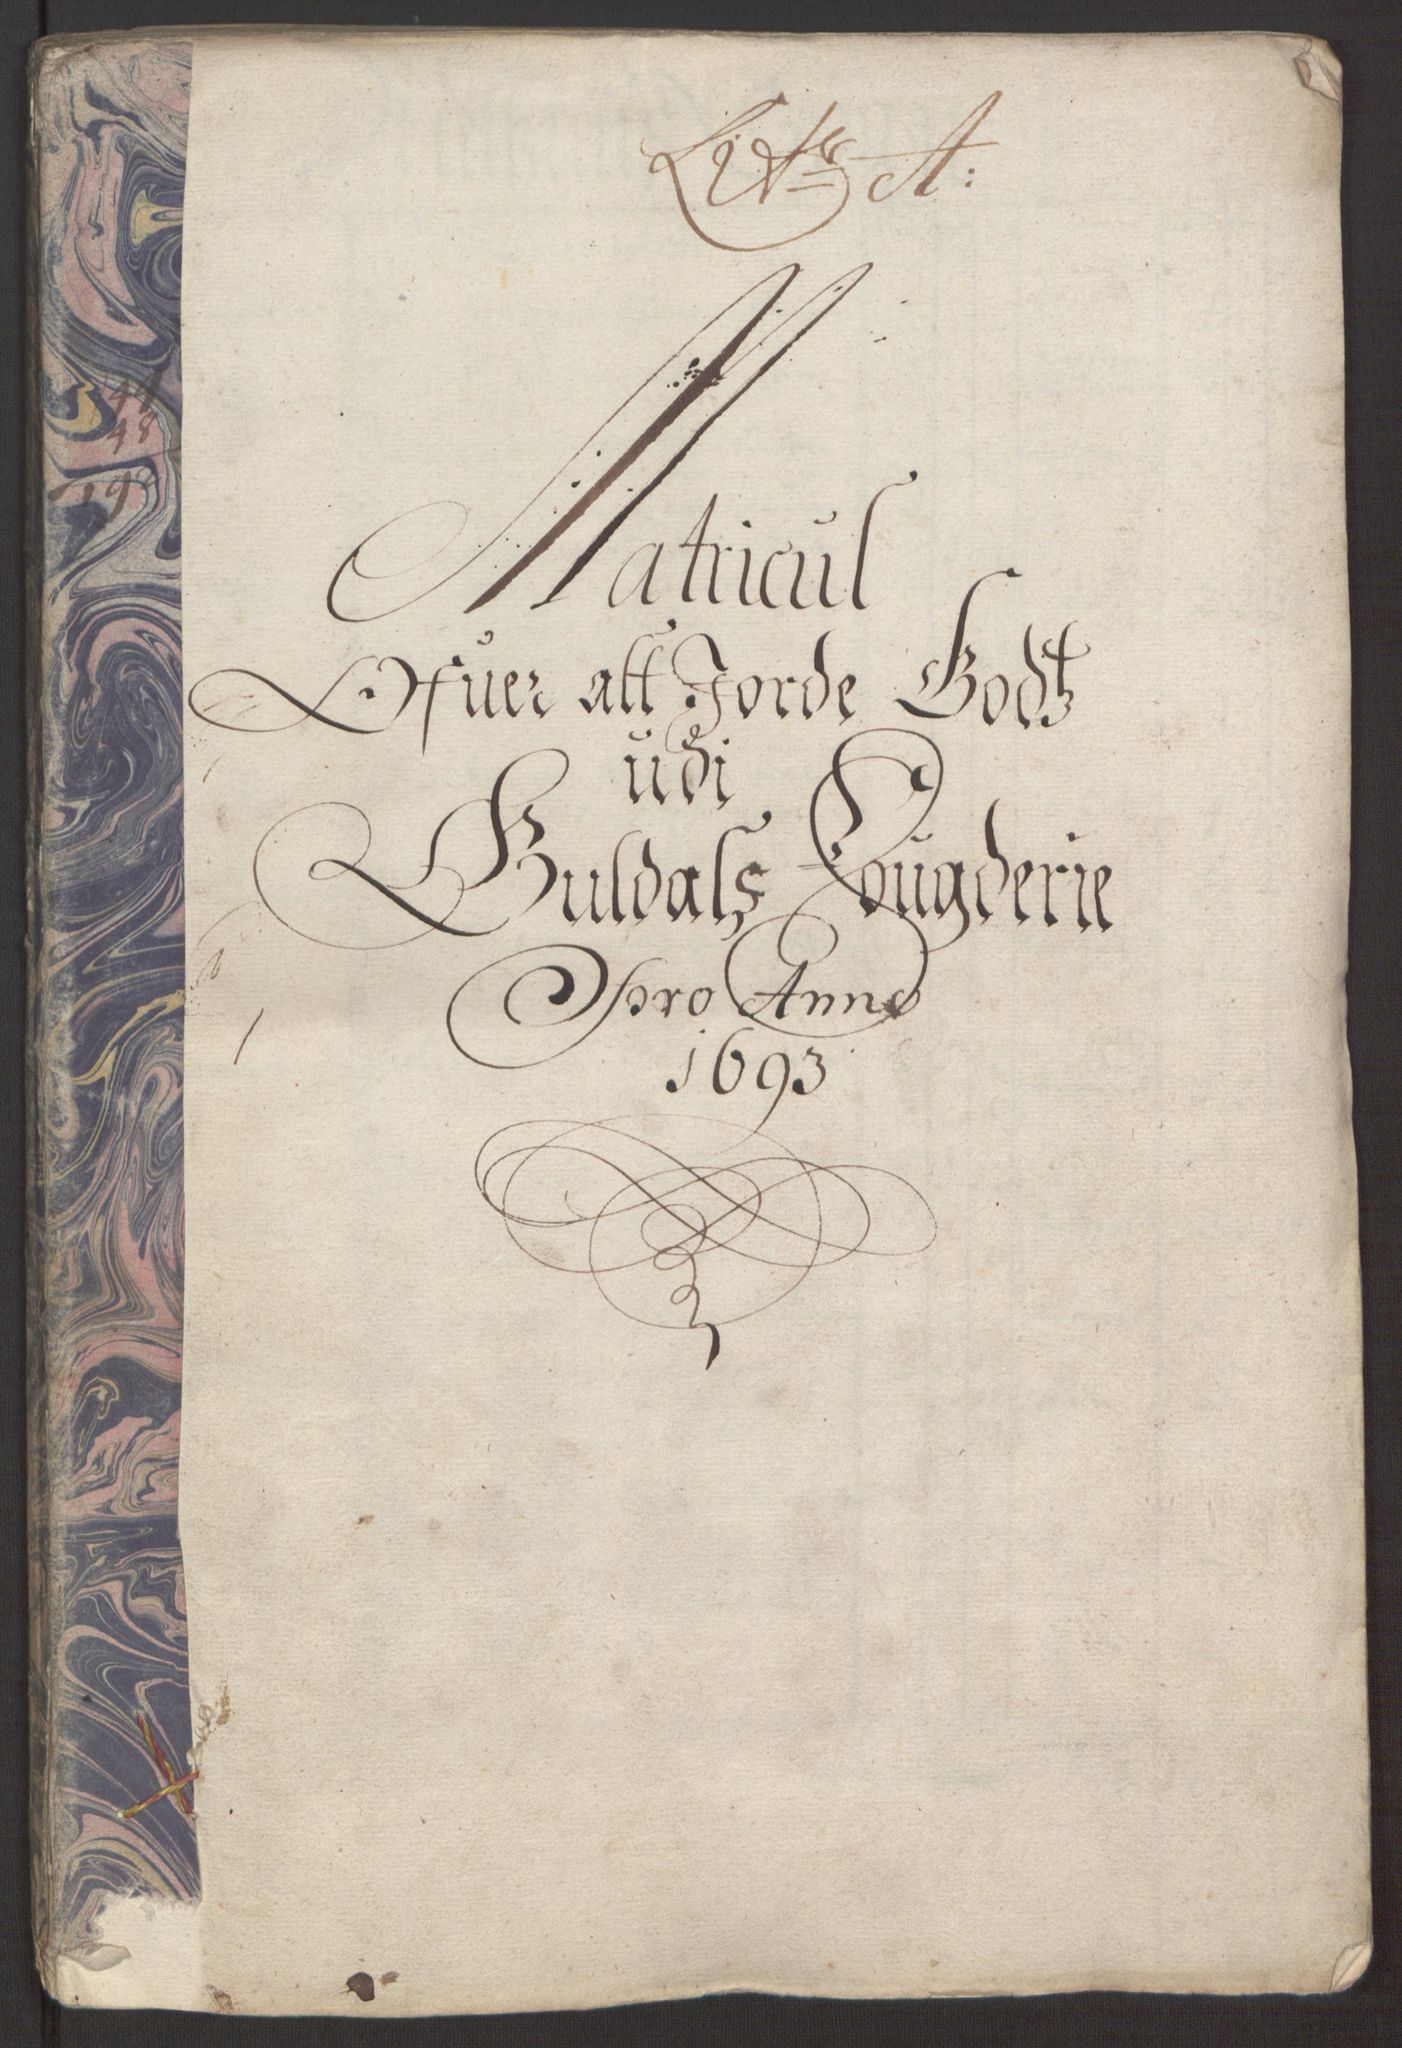 Litr A:
Matricul
Ofuer alt Jorde Godtz
udi
Guldals Fougderie
pro Anno
1693